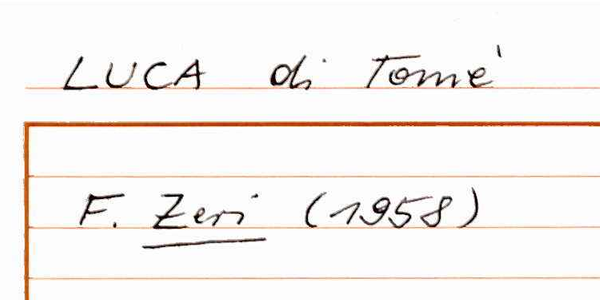 LUCA di Tomè
F. Zeri (1958)